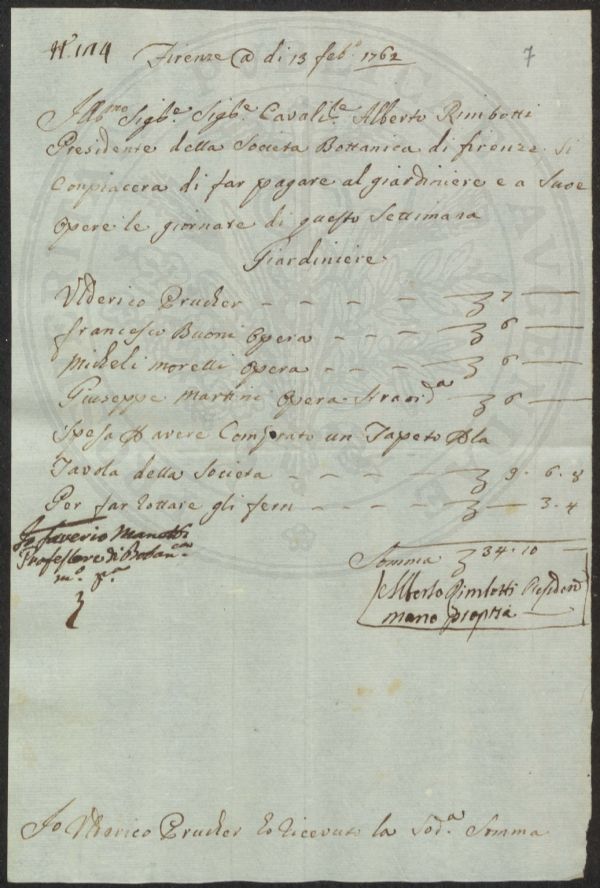 N.º 114
Firenze @ di 13 feb.º 1762
7
Ill.mo Sig.re Sig.re Cavali.re Alberto Rimbotti
Presidente della Societa Bottanica di firenze Si
Conpiacera di far pagare al giardiniere e a Suoe
Opere le giornare di questo Settimana
Giardiniere
Ulderico Prucker - - - - 7 —
francesco Buoni Opera - - - 6 —
Micheli moretti Opera - - - 6 —
Giuseppe Martini Opera Straord.a 6 —
Spesa P avere Comprato un Tapeto P la
Tavola della Societa - - - - 9 . 6 . 8
Per far Rottare gli ferri - - - - — 3 . 4
Io Saverio Manetti
Professore di Botan.ca
m.º p.a
Somma 34 . 10 —
Alberto Rimbotti Presiden
mano propria
Io Ulderico Prucker ho Ricevuto la Sod.a Somma